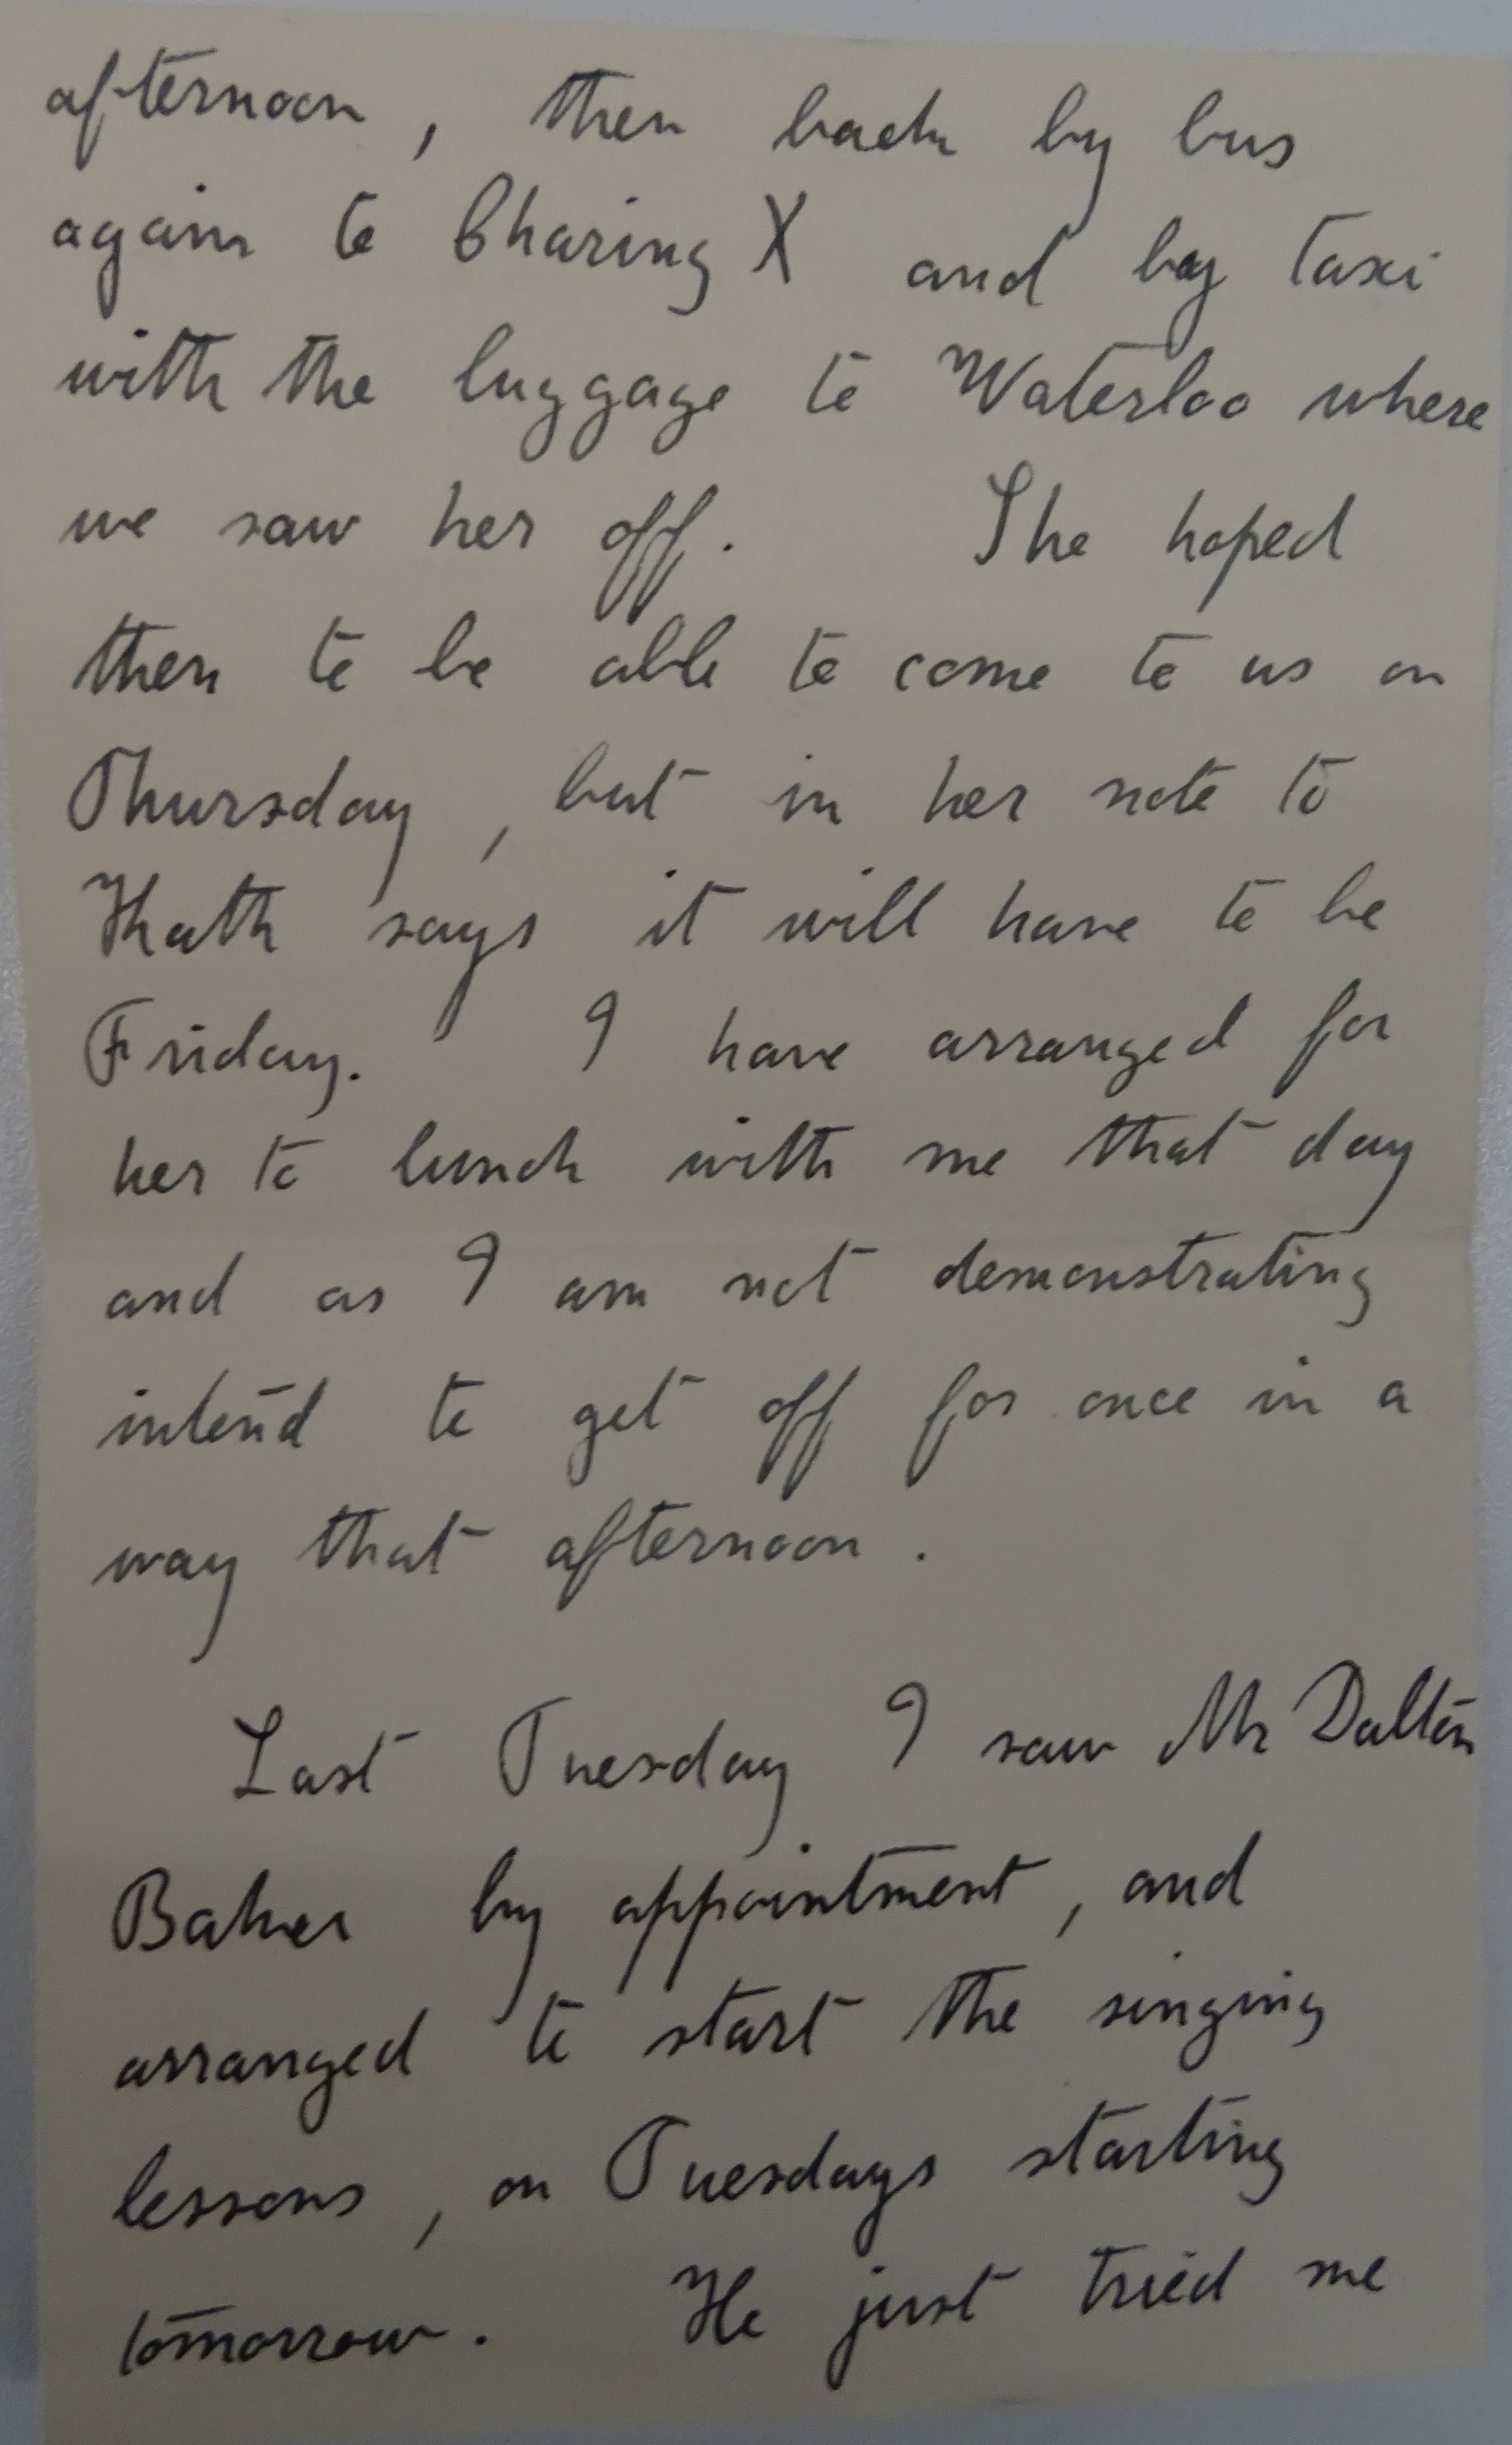 afternoon, then back by bus
again to Charing X and by taxi
with the luggage to Waterloo where
we saw her off. She hoped
then to be able to come to us on
Thursday, but in her note to
Kath says it will have to be
Friday. I have arranged for
her to lunch with me that day
and as I am not demonstrating
intend to get off for once in a
way that afternoon.
Last Tuesday I saw Mr Dalton
Baker by appointment, and
arranged to start the singing
lessons, on Tuesdays starting
tomorrow. He just tried me